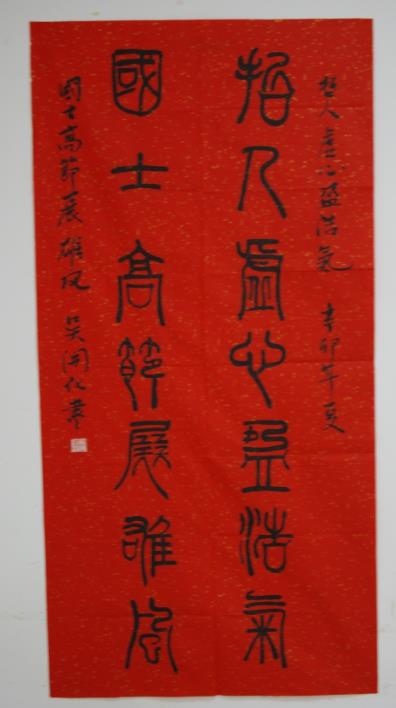 哲人虚心盈浩氣 辛卯年夏
哲人虛心盈浩氣
國士高節展雄風
國士高節展雄风 吴開化書